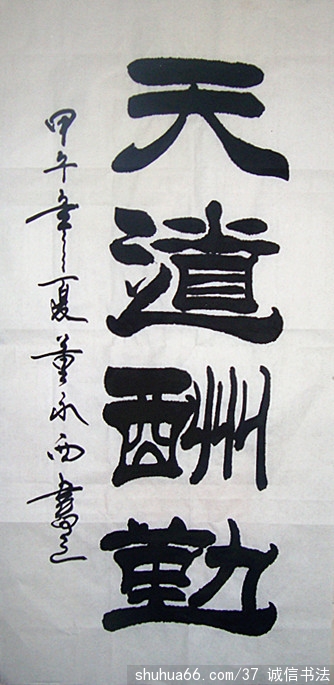 天道酬勤
甲午年夏董永西書
shuhua66.com/37 诚信书法